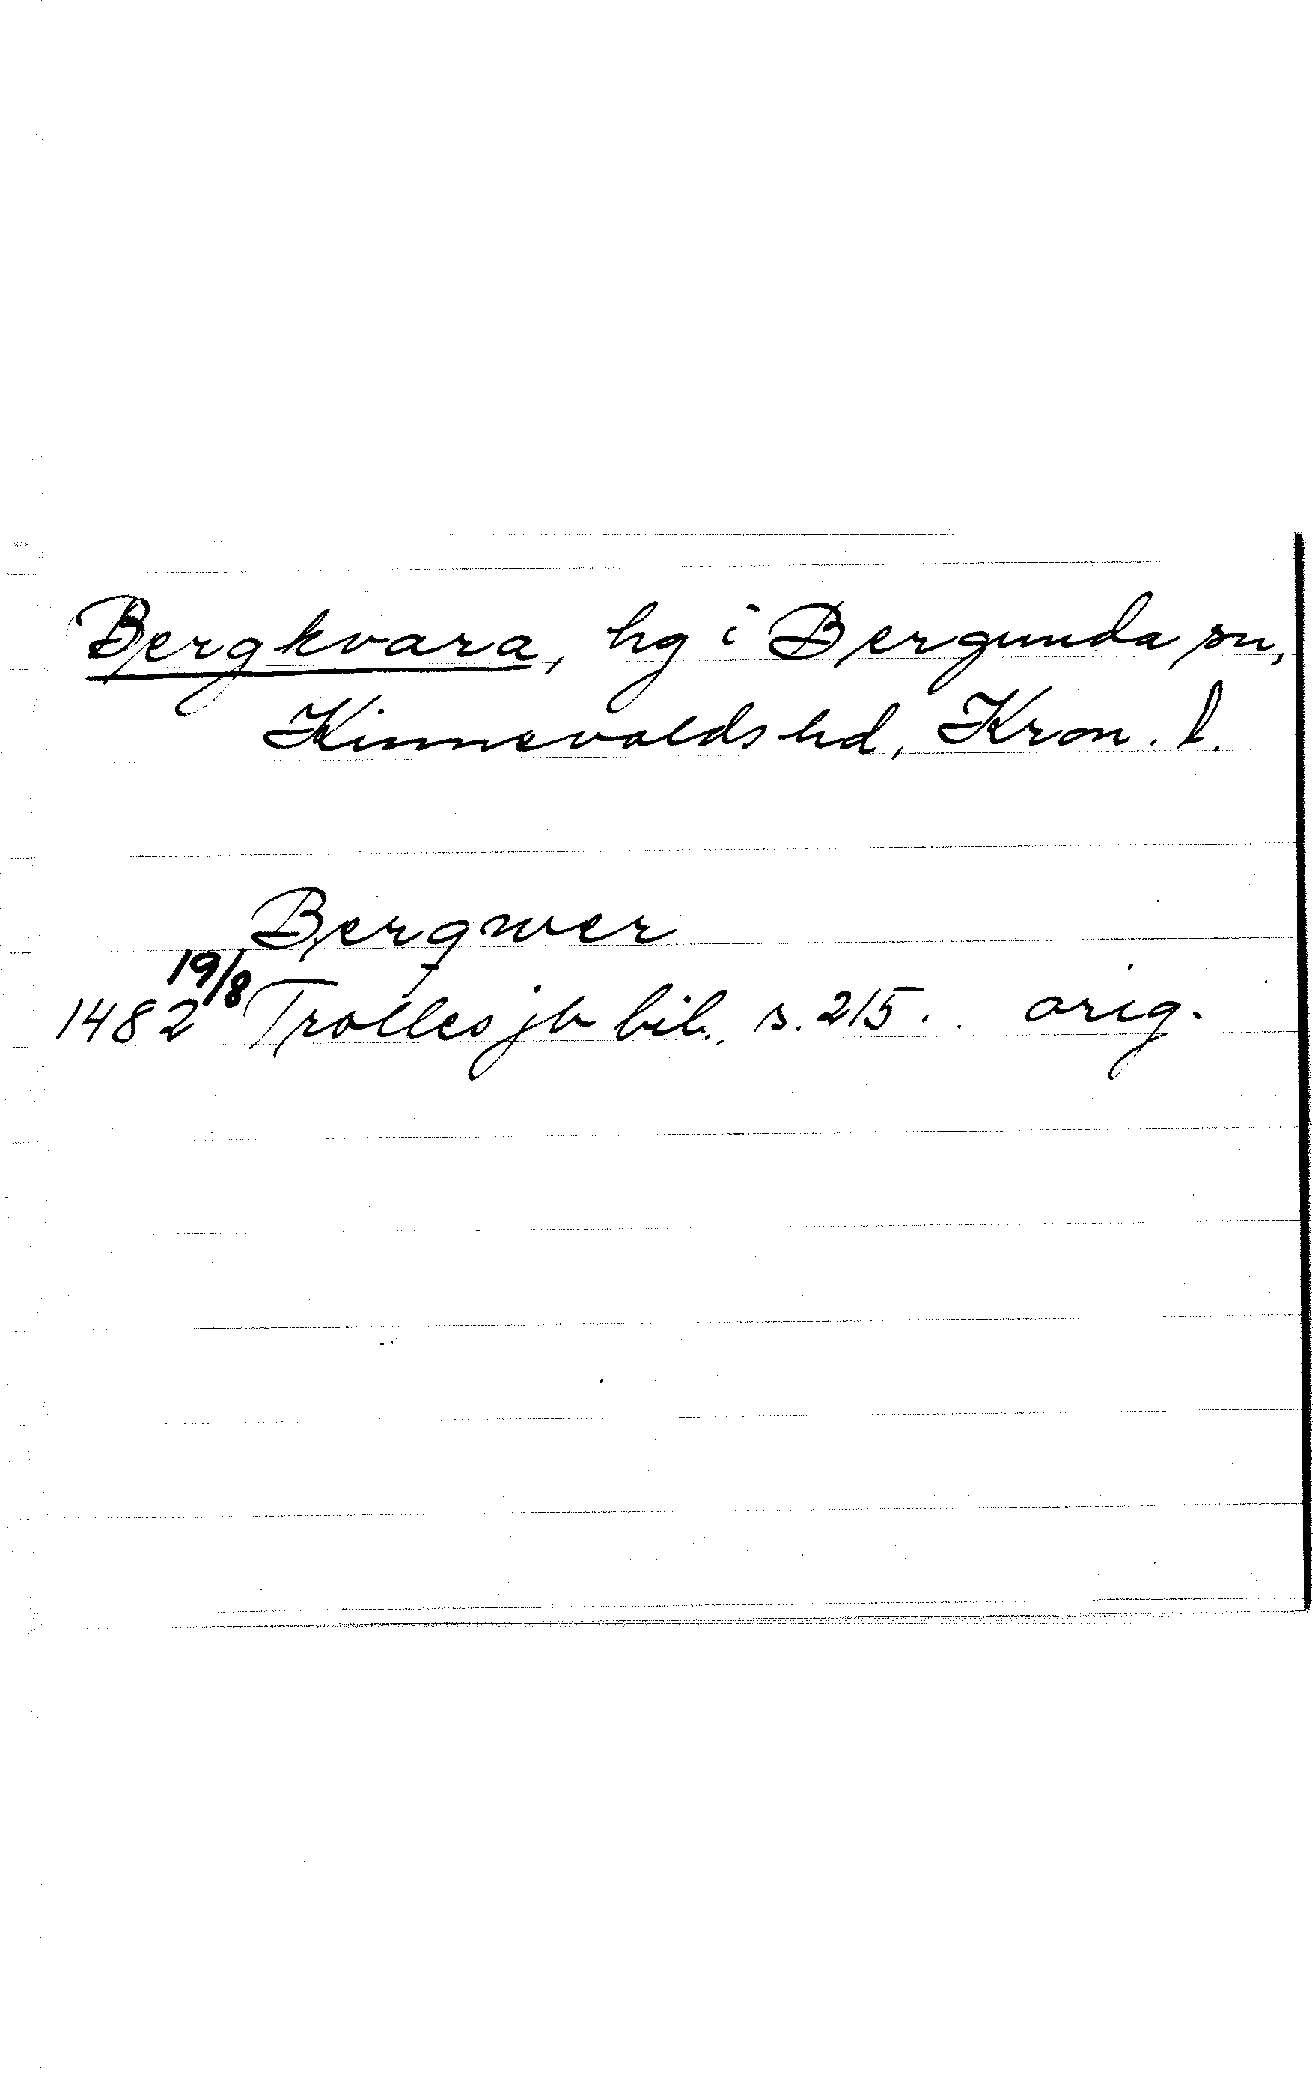 Bergkvara, hg i Bergunda sn,
Kinnevalds hd, Kron. l.
Bergqwer
1482 19/8 Trolles jb bil., s. 215. orig.